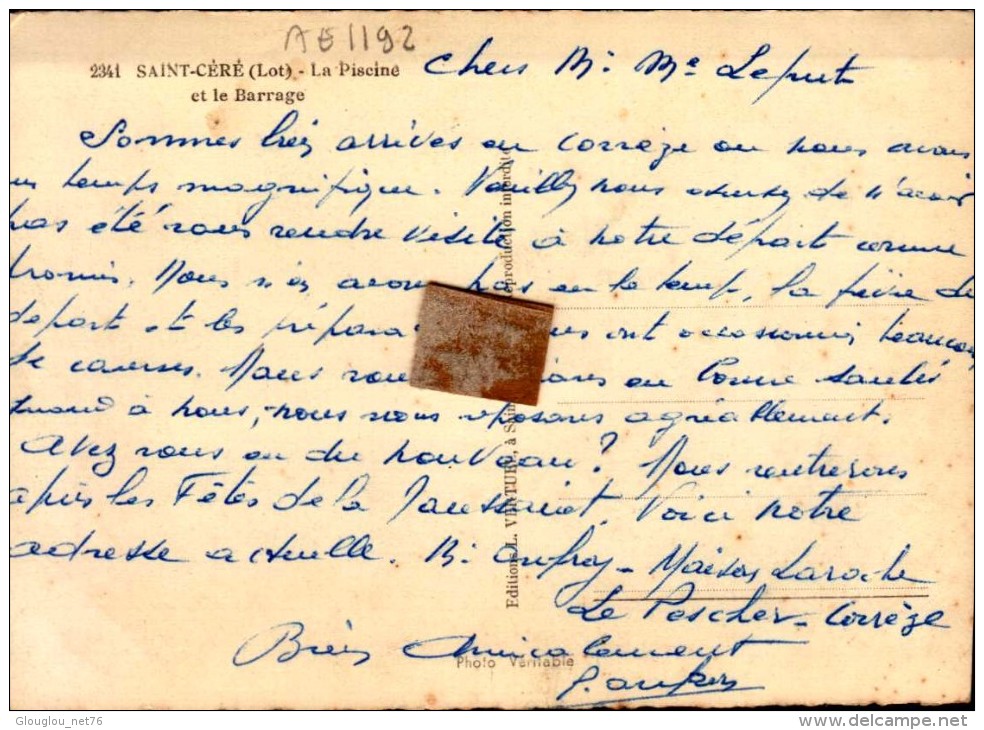 AE 1192
2341 SAINT-CÉRÉ (Lot) - La Piscine
et le Barrage
Chers Mr Me Leput
Sommes bien arrivés en Corrèze ou nous avons
un temps magnifique. Veuillez nous excuser de n'avoir
pas été vous rendre visite à notre départ comme
promis. Nous n'en avons pas eu le temps, la fièvre du
départ et les prépara ont occasionnés beaucoup
de courses. Nous vous en bonne santés
quand à nous, nous nous reposons agréablement.
Avez vous eu du nouveau? Nous rentrerons
après les Fêtes de la Toussaint. Voici notre
adresse actuelle. Mr Aufroy - Maison Laroche
Le Pescher - Corrèze
Bien Amicalement
Editions L. VERTUEL, à Sain
eproduction interdite
Photo Véritable
Glouglou_net76
delcampe.net